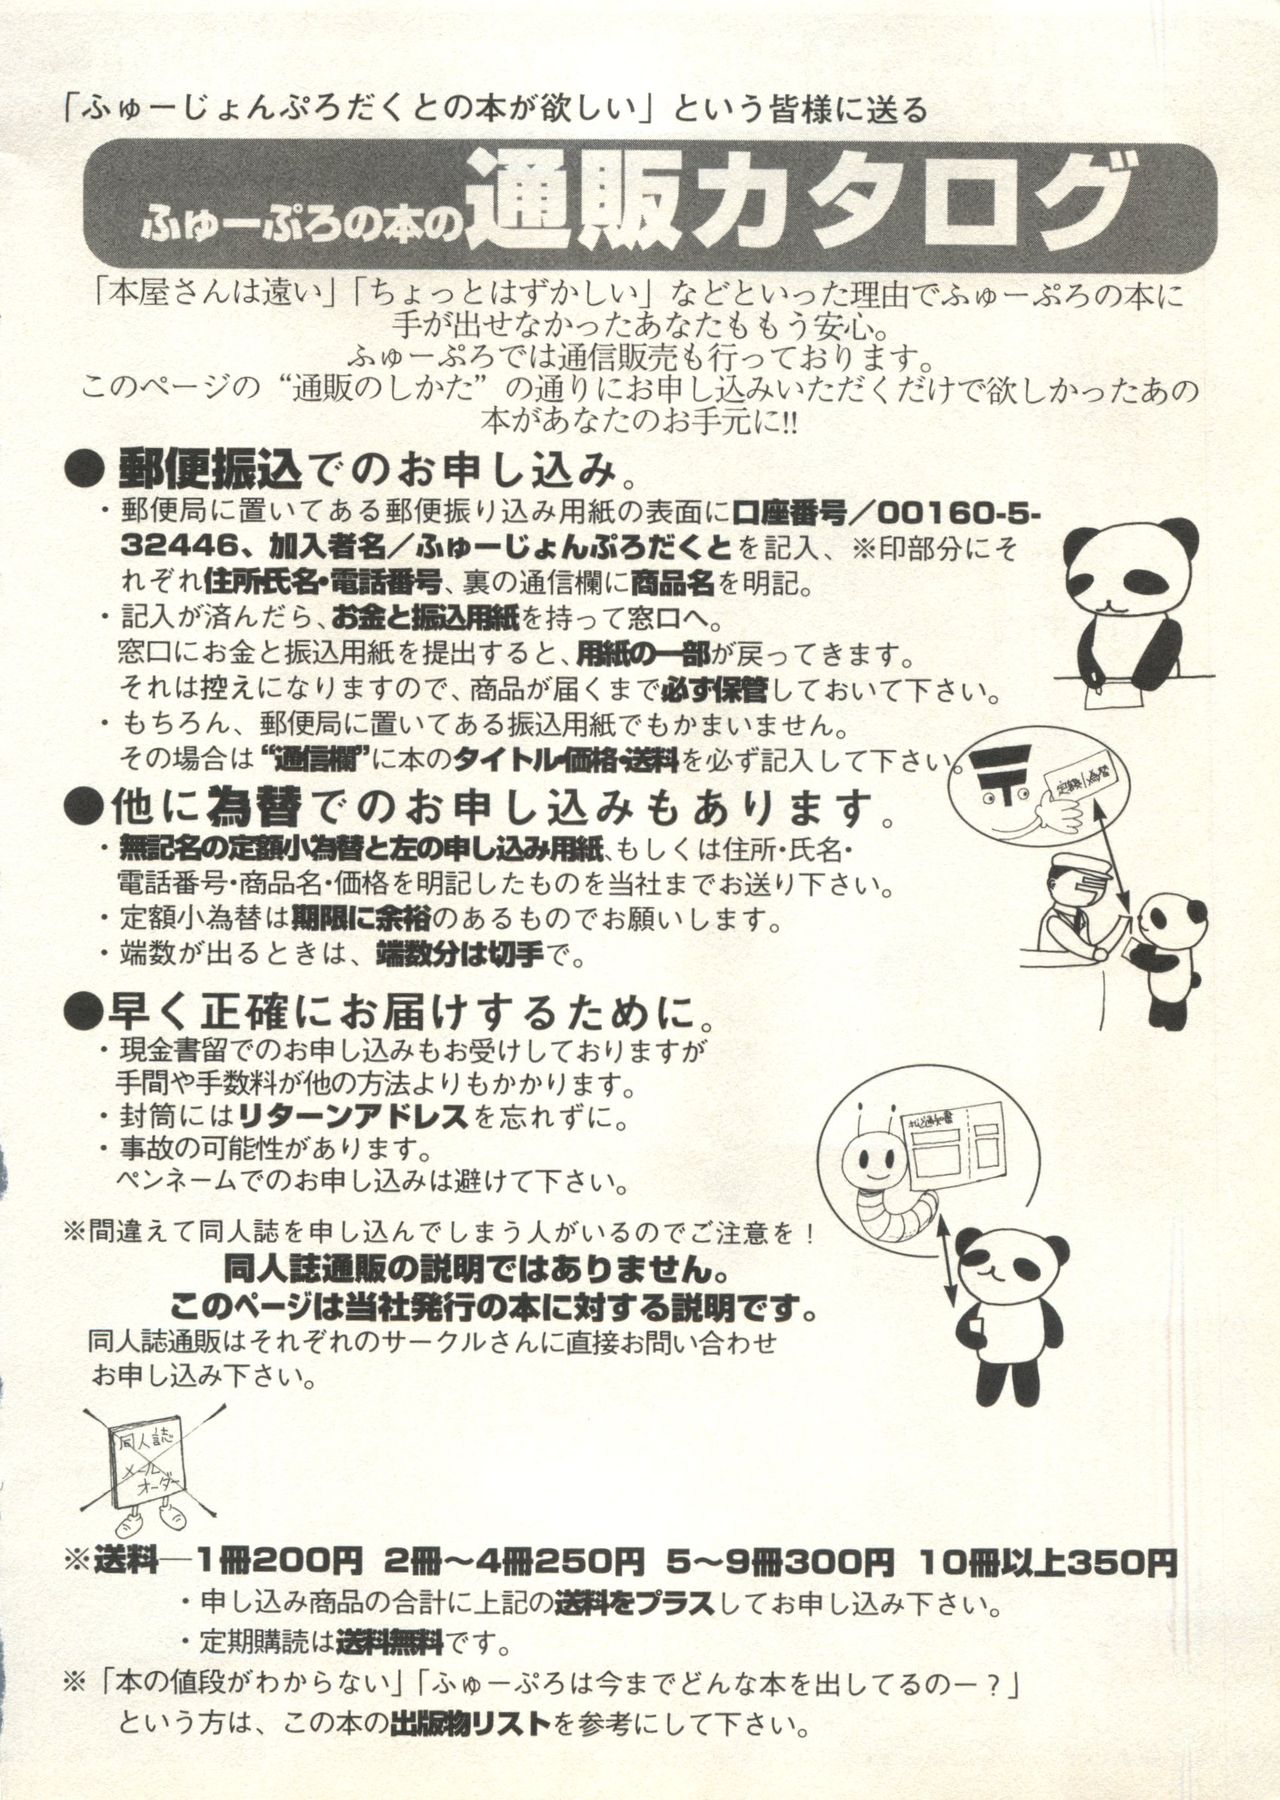 「ふゅーじょんぷろだくとの本が欲しい」という皆様に送る
ふゅーぷろの本の通販カタログ
「本屋さんは遠い」「ちょっとはずかしい」などといった理由でふゅーぷろの本に
手が出せなかったあなたももう安心。
ふゅーぷろでは通信販売も行っております。
このページの“通販のしかた”の通りにお申し込みいただくだけで欲しかったあの
本があなたのお手元に!!
●郵便振込でのお申し込み。
・郵便局に置いてある郵便振り込み用紙の表面に口座番号／00160-5-
32446、加入者名／ふゅーじょんぷろだくとを記入、※印部分にそ
れぞれ住所・氏名・電話番号、裏の通信欄に商品名を明記。
・記入が済んだら、お金と振込用紙を持って窓口へ。
窓口にお金と振込用紙を提出すると、用紙の一部が戻ってきます。
それは控えになりますので、商品が届くまで必ず保管しておいて下さい。
・もちろん、郵便局に置いてある振込用紙でもかまいません。
その場合は“通信欄”に本のタイトル・価格・送料を必ず記入して下さい。
定額小為替
●他に為替でのお申し込みもあります。
・無記名の定額小為替と左の申し込み用紙、もしくは住所・氏名・
電話番号・商品名・価格を明記したものを当社までお送り下さい。
・定額小為替は期限に余裕のあるものでお願いします。
・端数が出るときは、端数分は切手で。
●早く正確にお届けするために。
・現金書留でのお申し込みもお受けしておりますが
手間や手数料が他の方法よりもかかります。
・封筒にはリターンアドレスを忘れずに。
・事故の可能性があります。
ペンネームでのお申し込みは避けて下さい。
払込通知書
※間違えて同人誌を申し込んでしまう人がいるのでご注意を！
同人誌通販の説明ではありません。
このページは当社発行の本に対する説明です。
同人誌通販はそれぞれのサークルさんに直接お問い合わせ
お申し込み下さい。
同人誌
メール
オーダー
※送料─1冊200円 2冊～4冊250円 5～9冊300円 10冊以上350円
・申し込み商品の合計に上記の送料をプラスしてお申し込み下さい。
・定期購読は送料無料です。
※「本の値段がわからない」「ふゅーぷろは今までどんな本を出してるのー？」
という方は、この本の出版物リストを参考にして下さい。